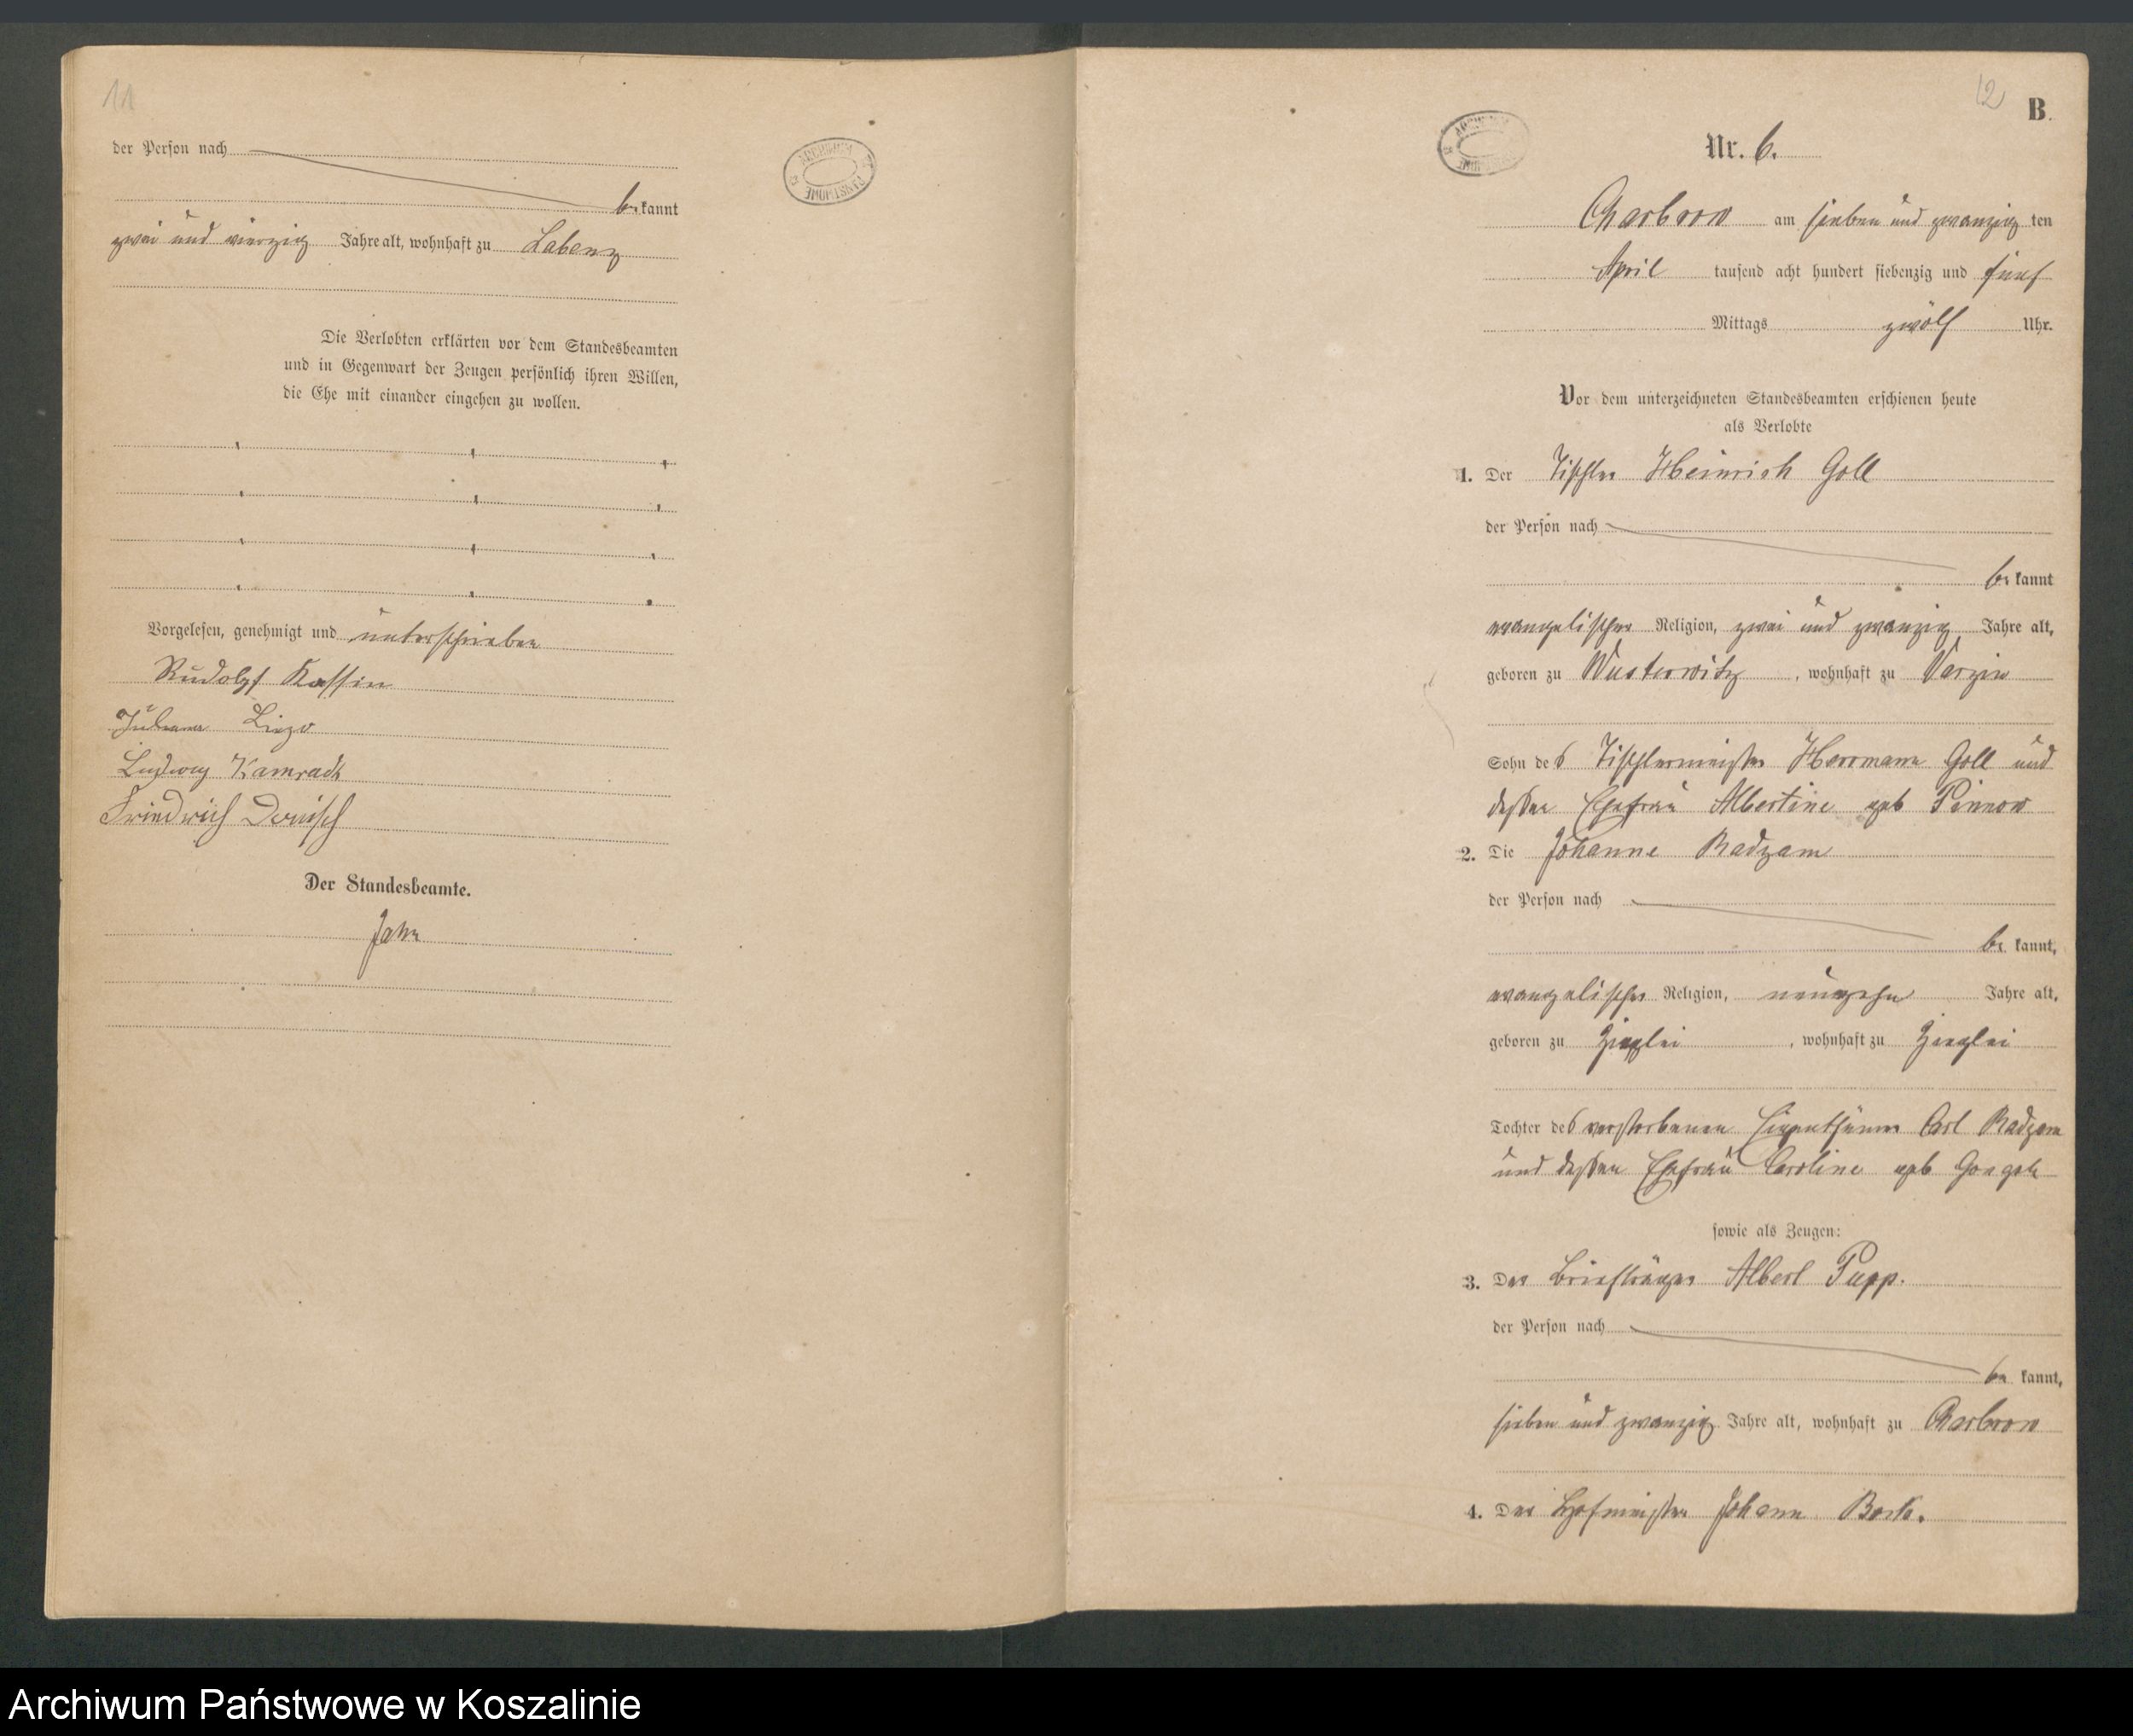 11
der Person nach
be kannt
zwei und vierzig Jahre alt, wohnhaft zu Labenz
ARCHIWUM PAŃSTWOWE
Die Verlobten erklärten vor dem Standesbeamten
und in Gegenwart der Zeugen persönlich ihren Willen,
die Ehe mit einander eingehen zu wollen.
Vorgelesen, genehmigt und unterschrieben
Rudolf Kossin
Liezo
Ludwig Kamradt
Friedrich Dernisch
Der Standesbeamte.
Jahn
12
B.
Nr. 6.
Charbrow am sieben und zwanzig ten
April tausend acht hundert siebenzig und fünf
Mittags zwölf Uhr.
Vor dem unterzeichneten Standesbeamten erschienen heute
als Verlobte
1. Der Tischler Heinrich Goll
der Person nach
be kannt
evangelischer Religion, zwei und zwanzig Jahre alt,
geboren zu Wusterwitz, wohnhaft zu Varzin
Sohn des Tischlermeister Herrmann Goll und
dessen Ehefrau Albertine geb Pinnow
2. Die Johanne Radzam
der Person nach
be kannt,
evangelischer Religion, neunzehn Jahre alt,
geboren zu , wohnhaft zu
Tochter des verstorbenen Eigenthümer Carl Radzam
und dessen Ehefrau Caroline geb
sowie als Zeugen:
3. Der Briefträger Albert Pupp.
der Person nach
be kannt,
sieben und zwanzig Jahre alt, wohnhaft zu Charbrow
4. Der Hofmeister Johann Bork.
Archiwum Państwowe w Koszalinie